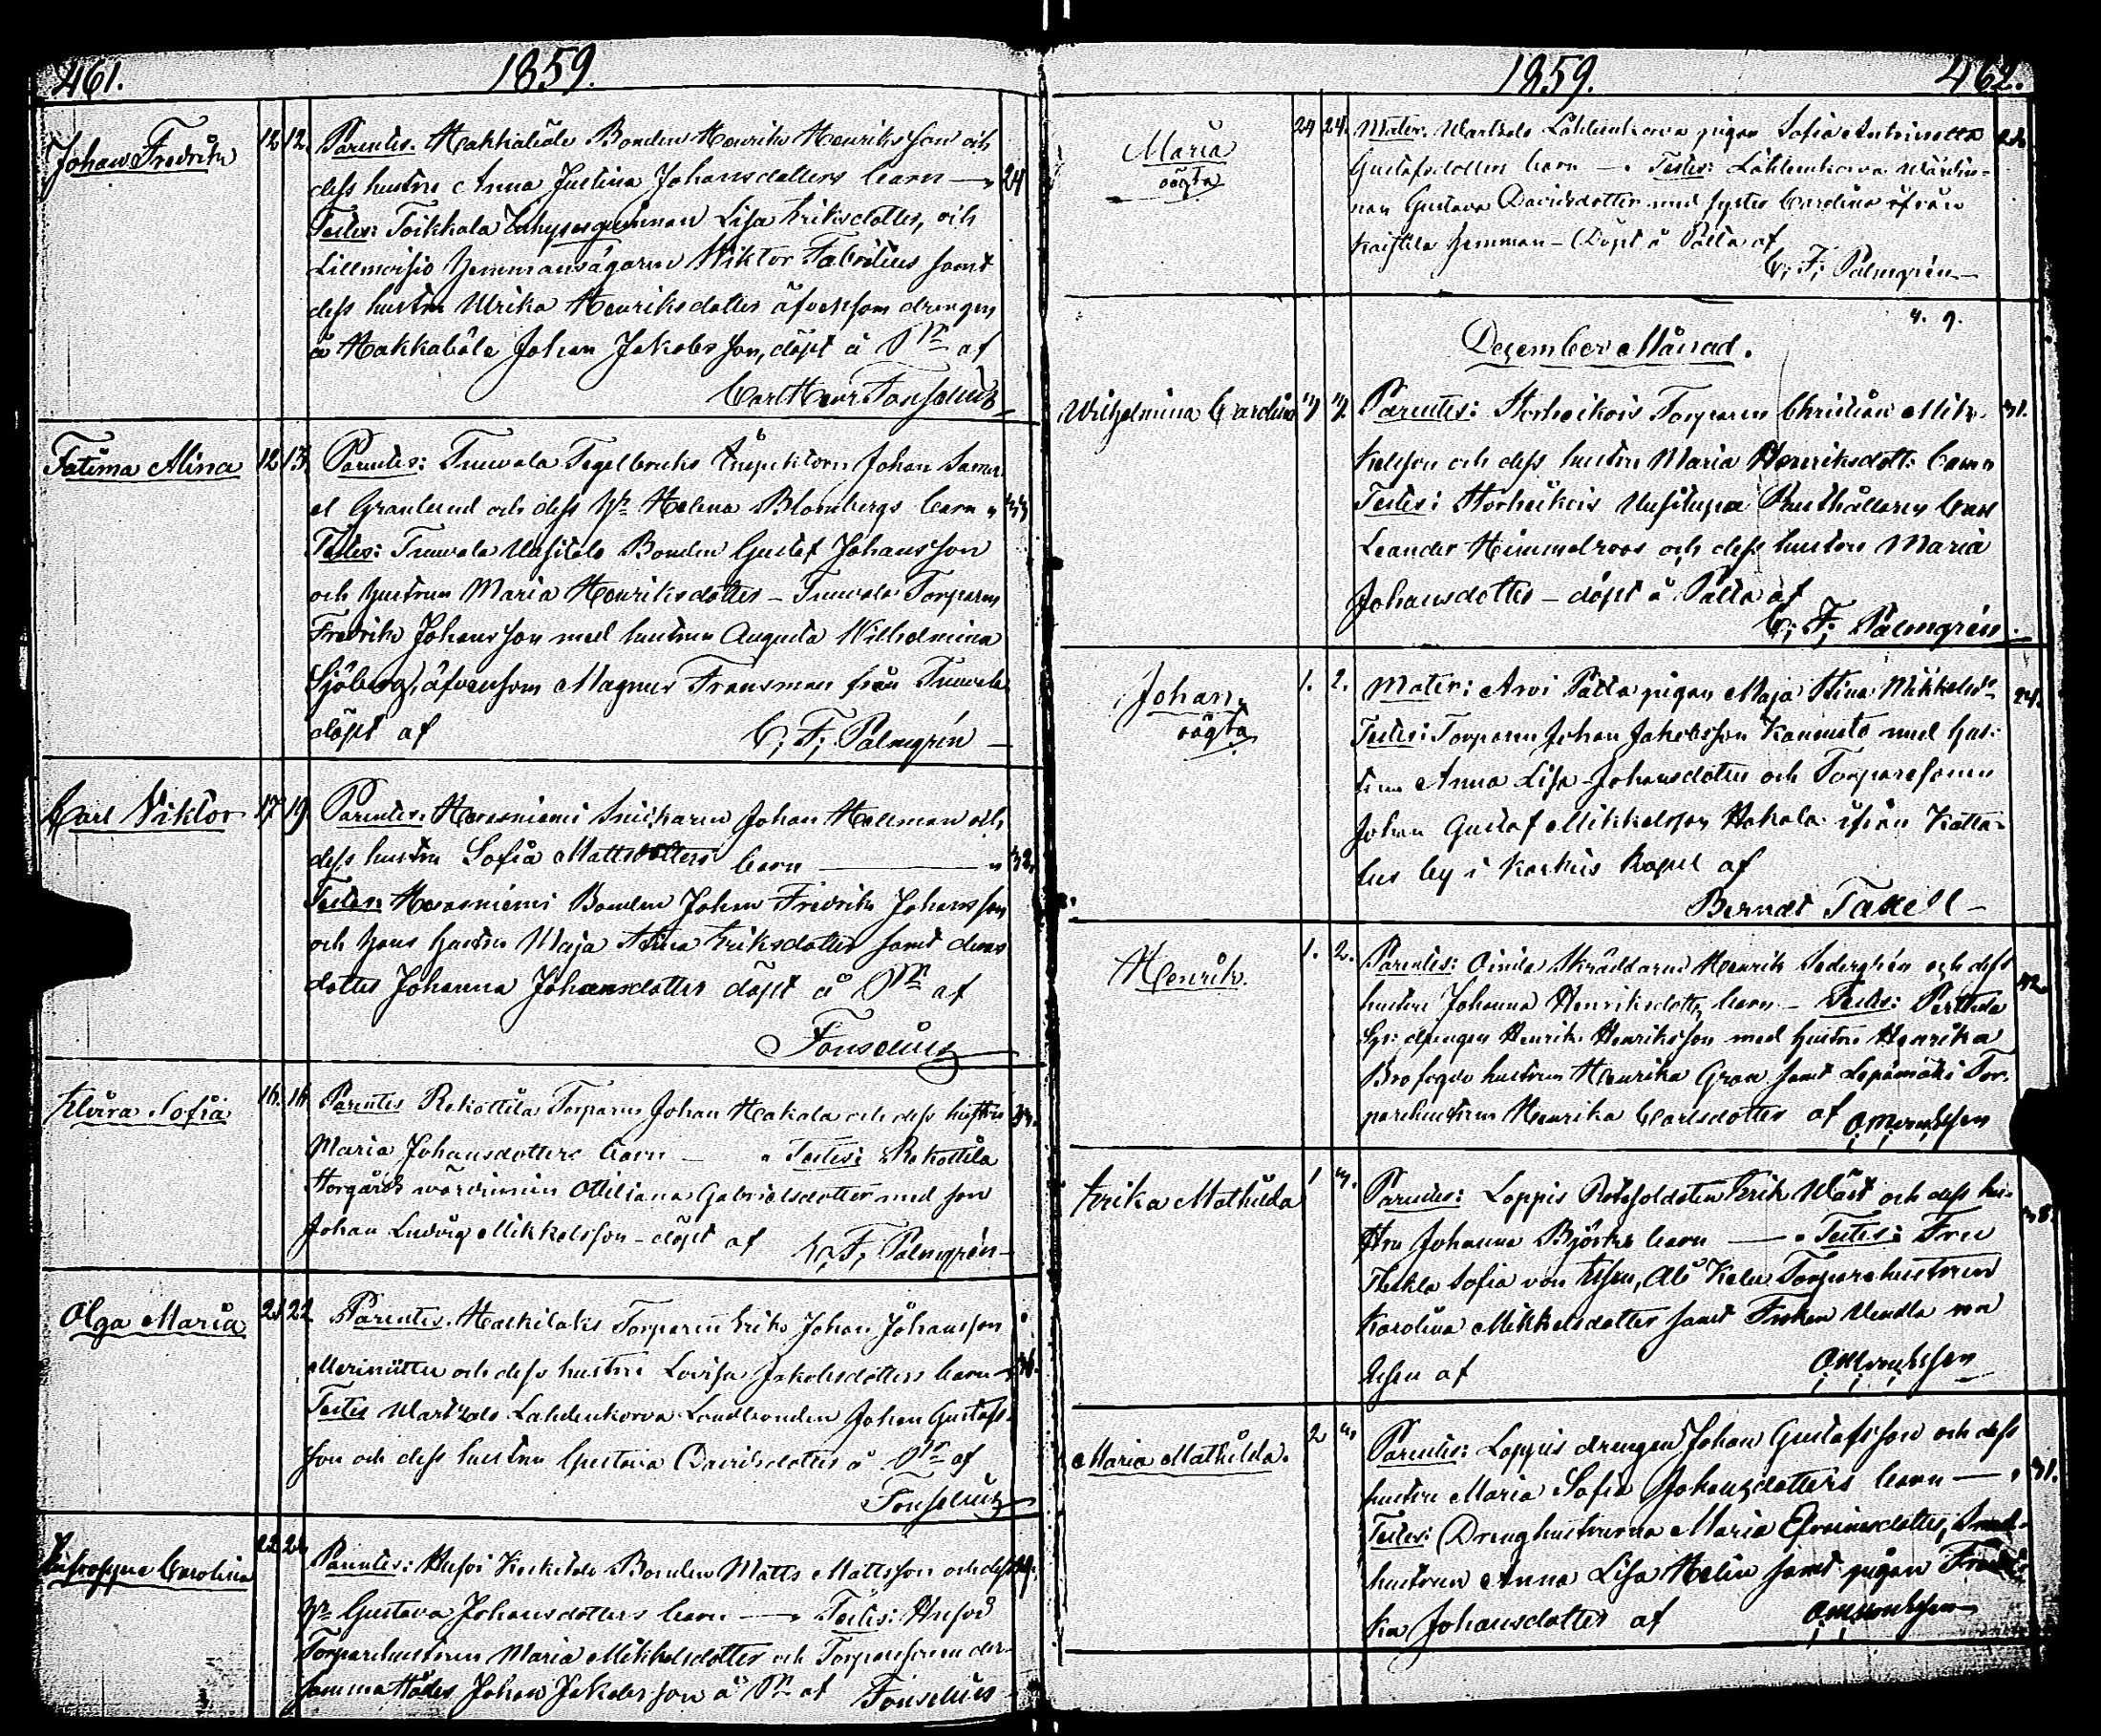 461. 1859.
Johan Fredrik 12 12. Parentes. Hakkabåle Bonden Henrik Henriksson och
dess hustru Anna Justina Johansdotters barn — 24
Testes: Toikkala Lisa Eriksdotter, och
Hemmansägaren Viktor Fabritius samt
dess hustru Ulrika Henriksdotter äfvensom drengen
å Hakkabåle Johan Jakobsson, döpt å af
Carl Henr Fonselius
Fatima Alina 12 13. Parentes: Tuuvala Tegelbruks Inspektorn Johan Samu-
el Granlund och dess Helena Blombergs barn " 33
Testes: Tuuvala Uusitalo Bonden Gustaf Johansson
och Hustrun Maria Henriksdotter – Tuuvala Torparen
Fredrik Johansson med hustrun Augusta Wilhelmina
Sjöberg, äfvensom Magnus Fransman från Tuuvala
döpt af C. F. Palmgrén —
Carl Viktor 17 19. Parentes. Snickaren Johan Hellman och
dess hustru Sofia Mattsdotters barn — " 32.
Testes: Bonden Johan Fredrik Johansson
och hans hustru Maja Stina Eriksdotter samt deras
dotter Johanna Johansdotter döpt å af
Fonselius
Elvira Sofia 16. 16 Parentes Rekottila Torparen Johan Hakala och dess hustru
Maria Johansdotters barn — " Testes: Rekottila
Storgårds värdinnan Ottiliana Gabrielsdotter med son
Johan Ludvig Mikkelsson – döpt af C. F. Palmgrén —
Olga Maria 21 22 Parentes. Torparen Erik Johan Johansson
och dess hustru Lovisa Jakobsdotters barn 36.
Testes Lahdenkorva Landbonden Johan Gustafs-
son och dess hustru Gustava Davidsdotter å af
Fonselius
Carolina 22 24 Parentes: Bonden Matts Mattsson och dess
Gustava Johansdotters barn — Testes:
Torparehustrun Maria Mikkelsdotter och Torparesonen der-
samma städes Johan Jakobsson å af Fonselius
1859. 462.
Maria oägta 24 24. Mater: Lähteenkorva pigan Sofia Antoinetta
Gustafsdotters barn — Testes: Lähteenkorva Wärdin-
nan Gustava Davidsdotter med syster Carolina ifrån
hemman – Döpt å Pälta af
C. F. Palmgrén —
4. 9.
December Månad.
Wilhelmina Carolina Parentes: Storheikois Torparen Christian Mik-
kelsson och dess hustru Maria Henriksdott: barn 31.
Testes: Storheikois Uusitupa Rusthållaren Carl
Leander Himmelroos och dess hustru Maria
Johansdotter – döpt å Pälta af
C. F. Palmgrén
Johan. oägta 1. 2. Mater: Arvi Pälta pigan Maja Stina Mikkelsd: 24.
Testes: Torparen Johan Jakobsson Kannisto med hus-
trun Anna Lisa Johansdotter och Torparesonen
Johan Gustaf Mikkelsson Hakala ifrån Katta-
lus by i Karkus Kapel af
Berndt Takell —
Henrik. 1. 2. Parentes: Oinila Skräddaren Henrik Sedergrén och dess
hustru Johanna Henriksdott: barn — Testes: Perttula 42.
drengen Henrik Henriksson med hustru Henrika
Brofogde hustrun Henrika Gran samt Lepämäki Tor-
parehustrun Henrika Carlsdotter af
Erika Mathilda 1 3. Parentes: Loppis Rotesoldaten Erik Wäst och dess hu-
stru Johanna Björks barn — " Testes: Fru 38.
Thekla Sofia von Essen, Torparehustrun
Karolina Mikkelsdotter samt Fröken Vendla von
Essen af
Maria Mathilda. 2 3. Parentes: Loppis drengen Johan Gustafsson och dess
hustru Maria Sofia Johansdotters barn — 31.
Testes: Drenghustrurna Maria Efraimsdotter,
hustrun Anna Lisa Helin samt pigan Fredri-
ka Johansdotter af